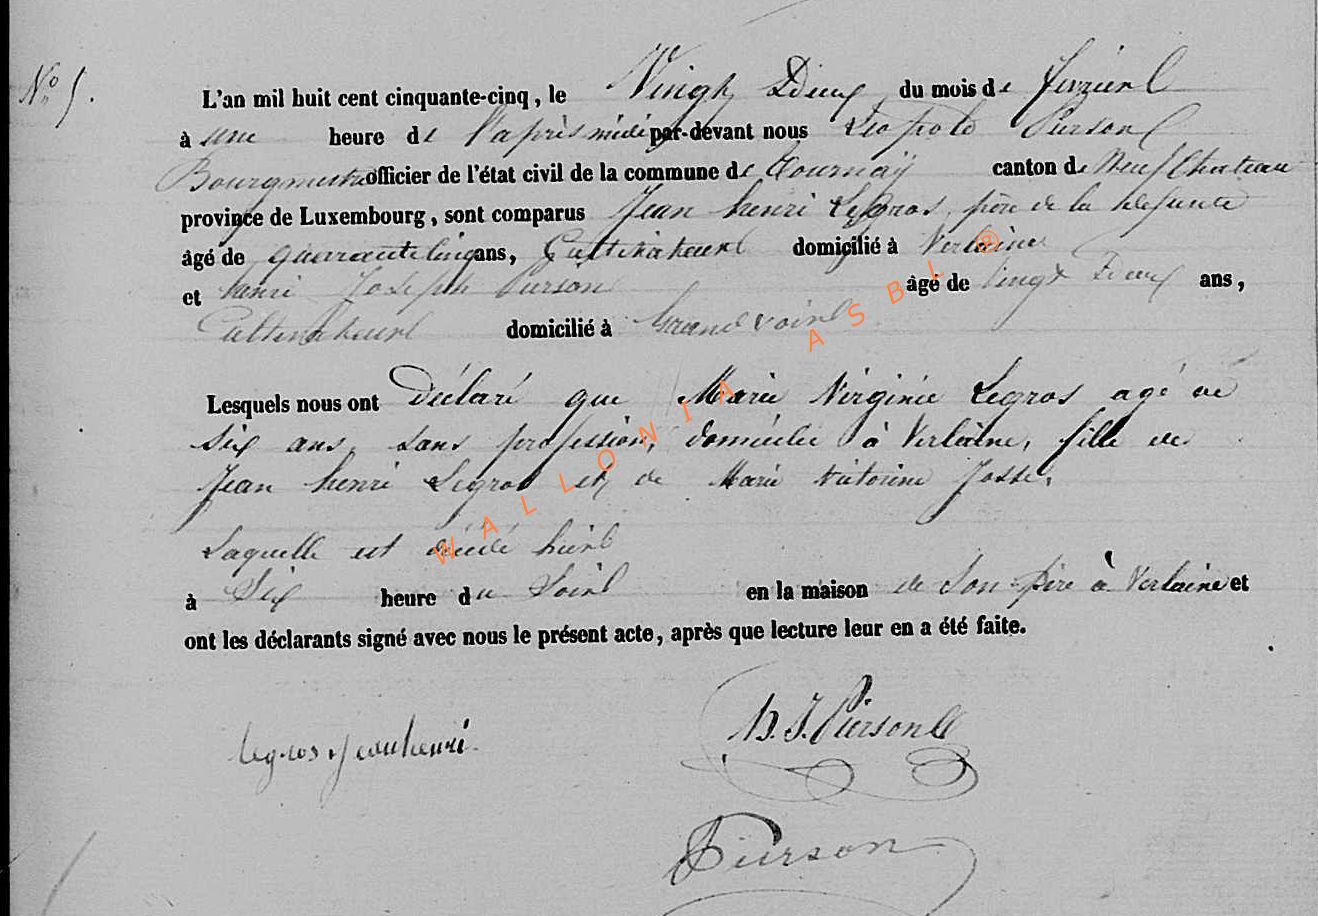 No 5.
L'an mil huit cent cinquante-cinq, le Vingt Deux du mois de fevrier
à une heure de l'après midi par-devant nous Léopold Pierson
Bourgmestre officier de l'état civil de la commune de Tournay canton de Neufchateau
province de Luxembourg, sont comparus Jean henri Legros, père de la defunte
âgé de quarante cinq ans, Cultivateur domicilié à Verlaine
et henri Joseph Pierson âgé de vingt Deux ans,
Cultivateur domicilié à Grandvoir
Lesquels nous ont Déclaré que Marie Virginie Legros agé de
six ans, sans profession, domiciliée à Verlaine, fille de
Jean henri Legros et de Marie Victorine Josse,
Laquelle est décédé hier
à Six heure du Soir en la maison de son père à Verlaine et
ont les déclarants signé avec nous le présent acte, après que lecture leur en a été faite.
legros jeanhenri
h. J. Pierson
Pierson
WALLONIA ASBL ®